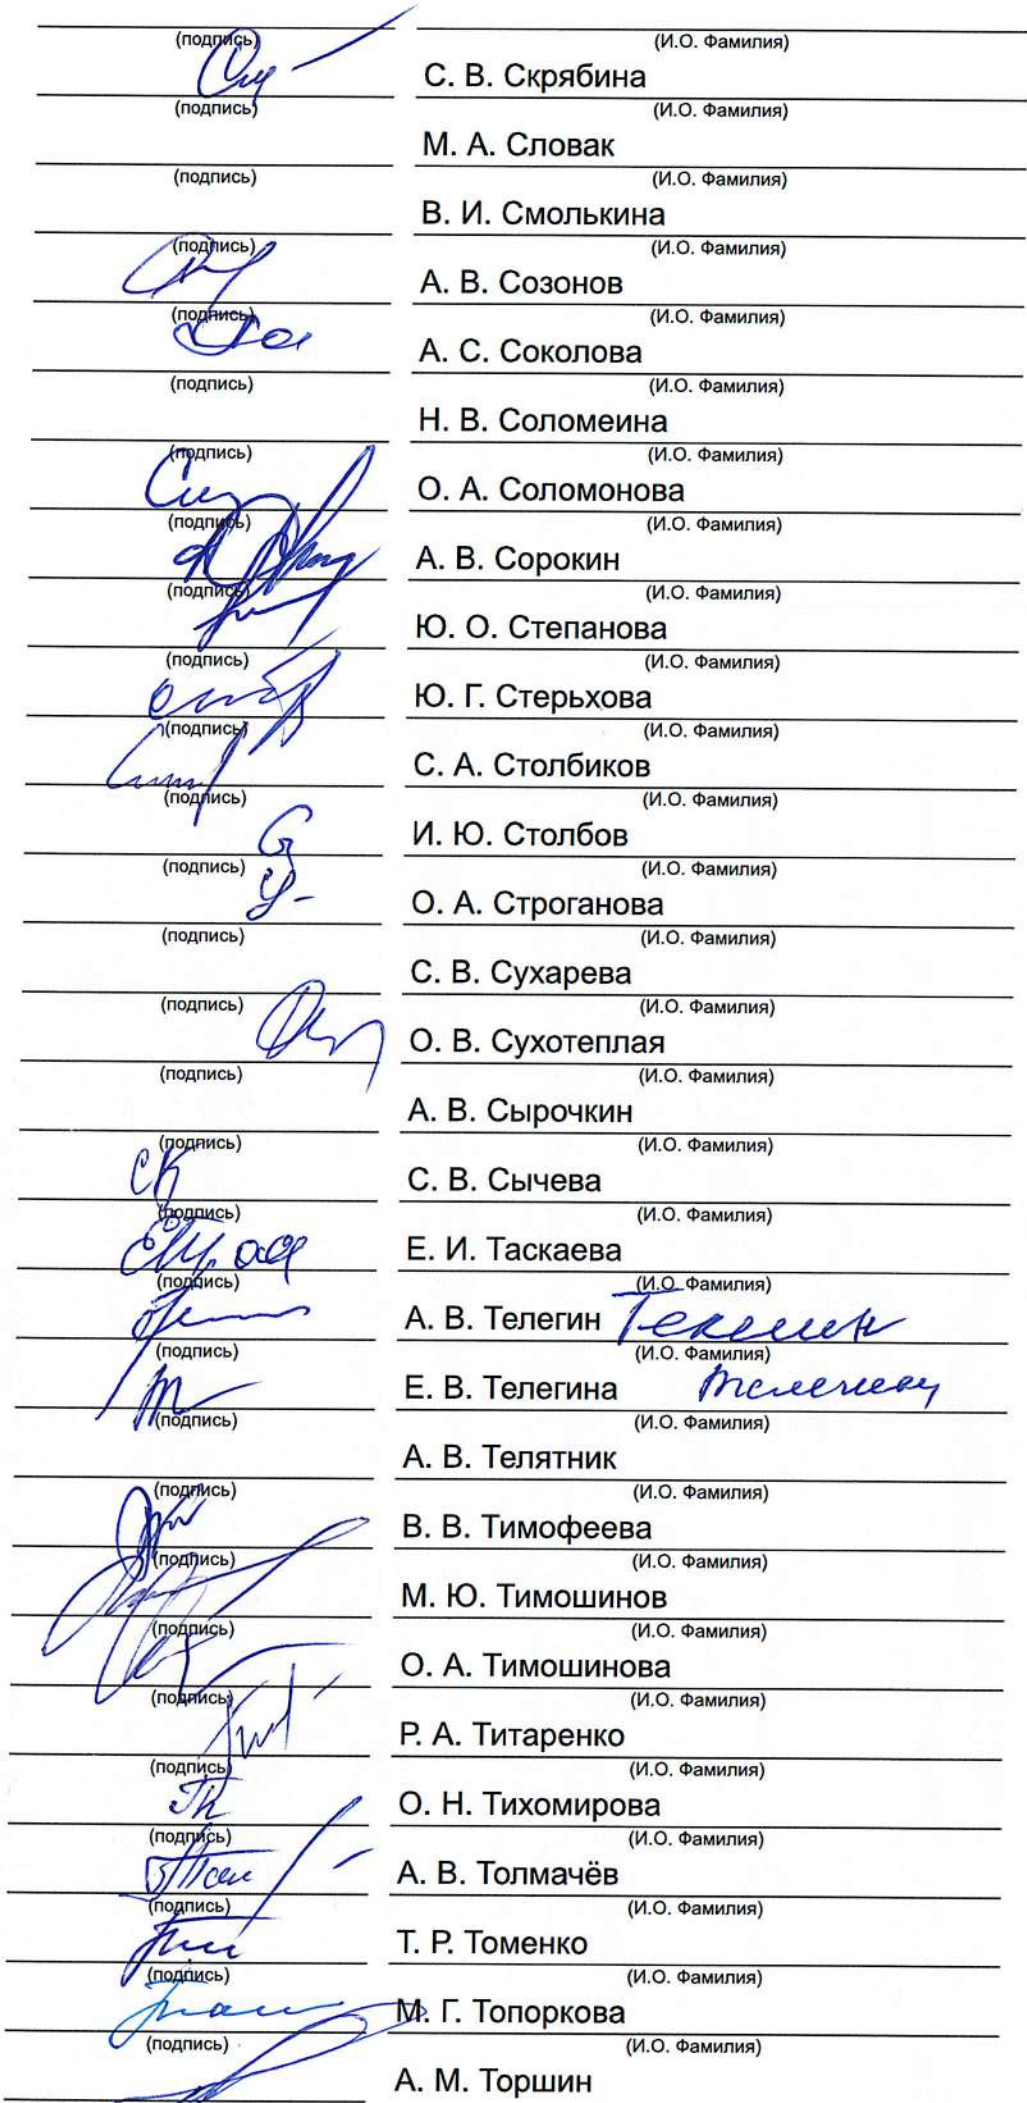 (подпись) (И.О. Фамилия)
С. В. Скрябина
(подпись) (И.О. Фамилия)
М. А. Словак
(подпись) (И.О. Фамилия)
В. И. Смолькина
(подпись) (И.О. Фамилия)
А. В. Созонов
(подпись) (И.О. Фамилия)
А. С. Соколова
(подпись) (И.О. Фамилия)
Н. В. Соломеина
(подпись) (И.О. Фамилия)
О. А. Соломонова
(подпись) (И.О. Фамилия)
А. В. Сорокин
(подпись) (И.О. Фамилия)
Ю. О. Степанова
(подпись) (И.О. Фамилия)
Ю. Г. Стерьхова
(подпись) (И.О. Фамилия)
С. А. Столбиков
(подпись) (И.О. Фамилия)
И. Ю. Столбов
(подпись) (И.О. Фамилия)
О. А. Строганова
(подпись) (И.О. Фамилия)
С. В. Сухарева
(подпись) (И.О. Фамилия)
О. В. Сухотеплая
(подпись) (И.О. Фамилия)
А. В. Сырочкин
(подпись) (И.О. Фамилия)
С. В. Сычева
(подпись) (И.О. Фамилия)
Е. И. Таскаева
(подпись) (И.О. Фамилия)
А. В. Телегин
(подпись) (И.О. Фамилия)
Е. В. Телегина
(подпись) (И.О. Фамилия)
А. В. Телятник
(подпись) (И.О. Фамилия)
В. В. Тимофеева
(подпись) (И.О. Фамилия)
М. Ю. Тимошинов
(подпись) (И.О. Фамилия)
О. А. Тимошинова
(подпись) (И.О. Фамилия)
Р. А. Титаренко
(подпись) (И.О. Фамилия)
О. Н. Тихомирова
(подпись) (И.О. Фамилия)
А. В. Толмачёв
(подпись) (И.О. Фамилия)
Т. Р. Томенко
(подпись) (И.О. Фамилия)
М. Г. Топоркова
(подпись) (И.О. Фамилия)
А. М. Торшин